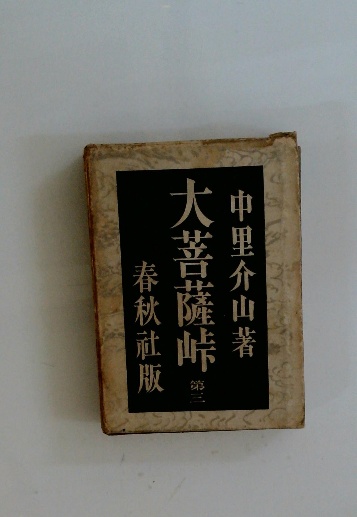 中里介山著
大菩薩峠 第三
春秋社版